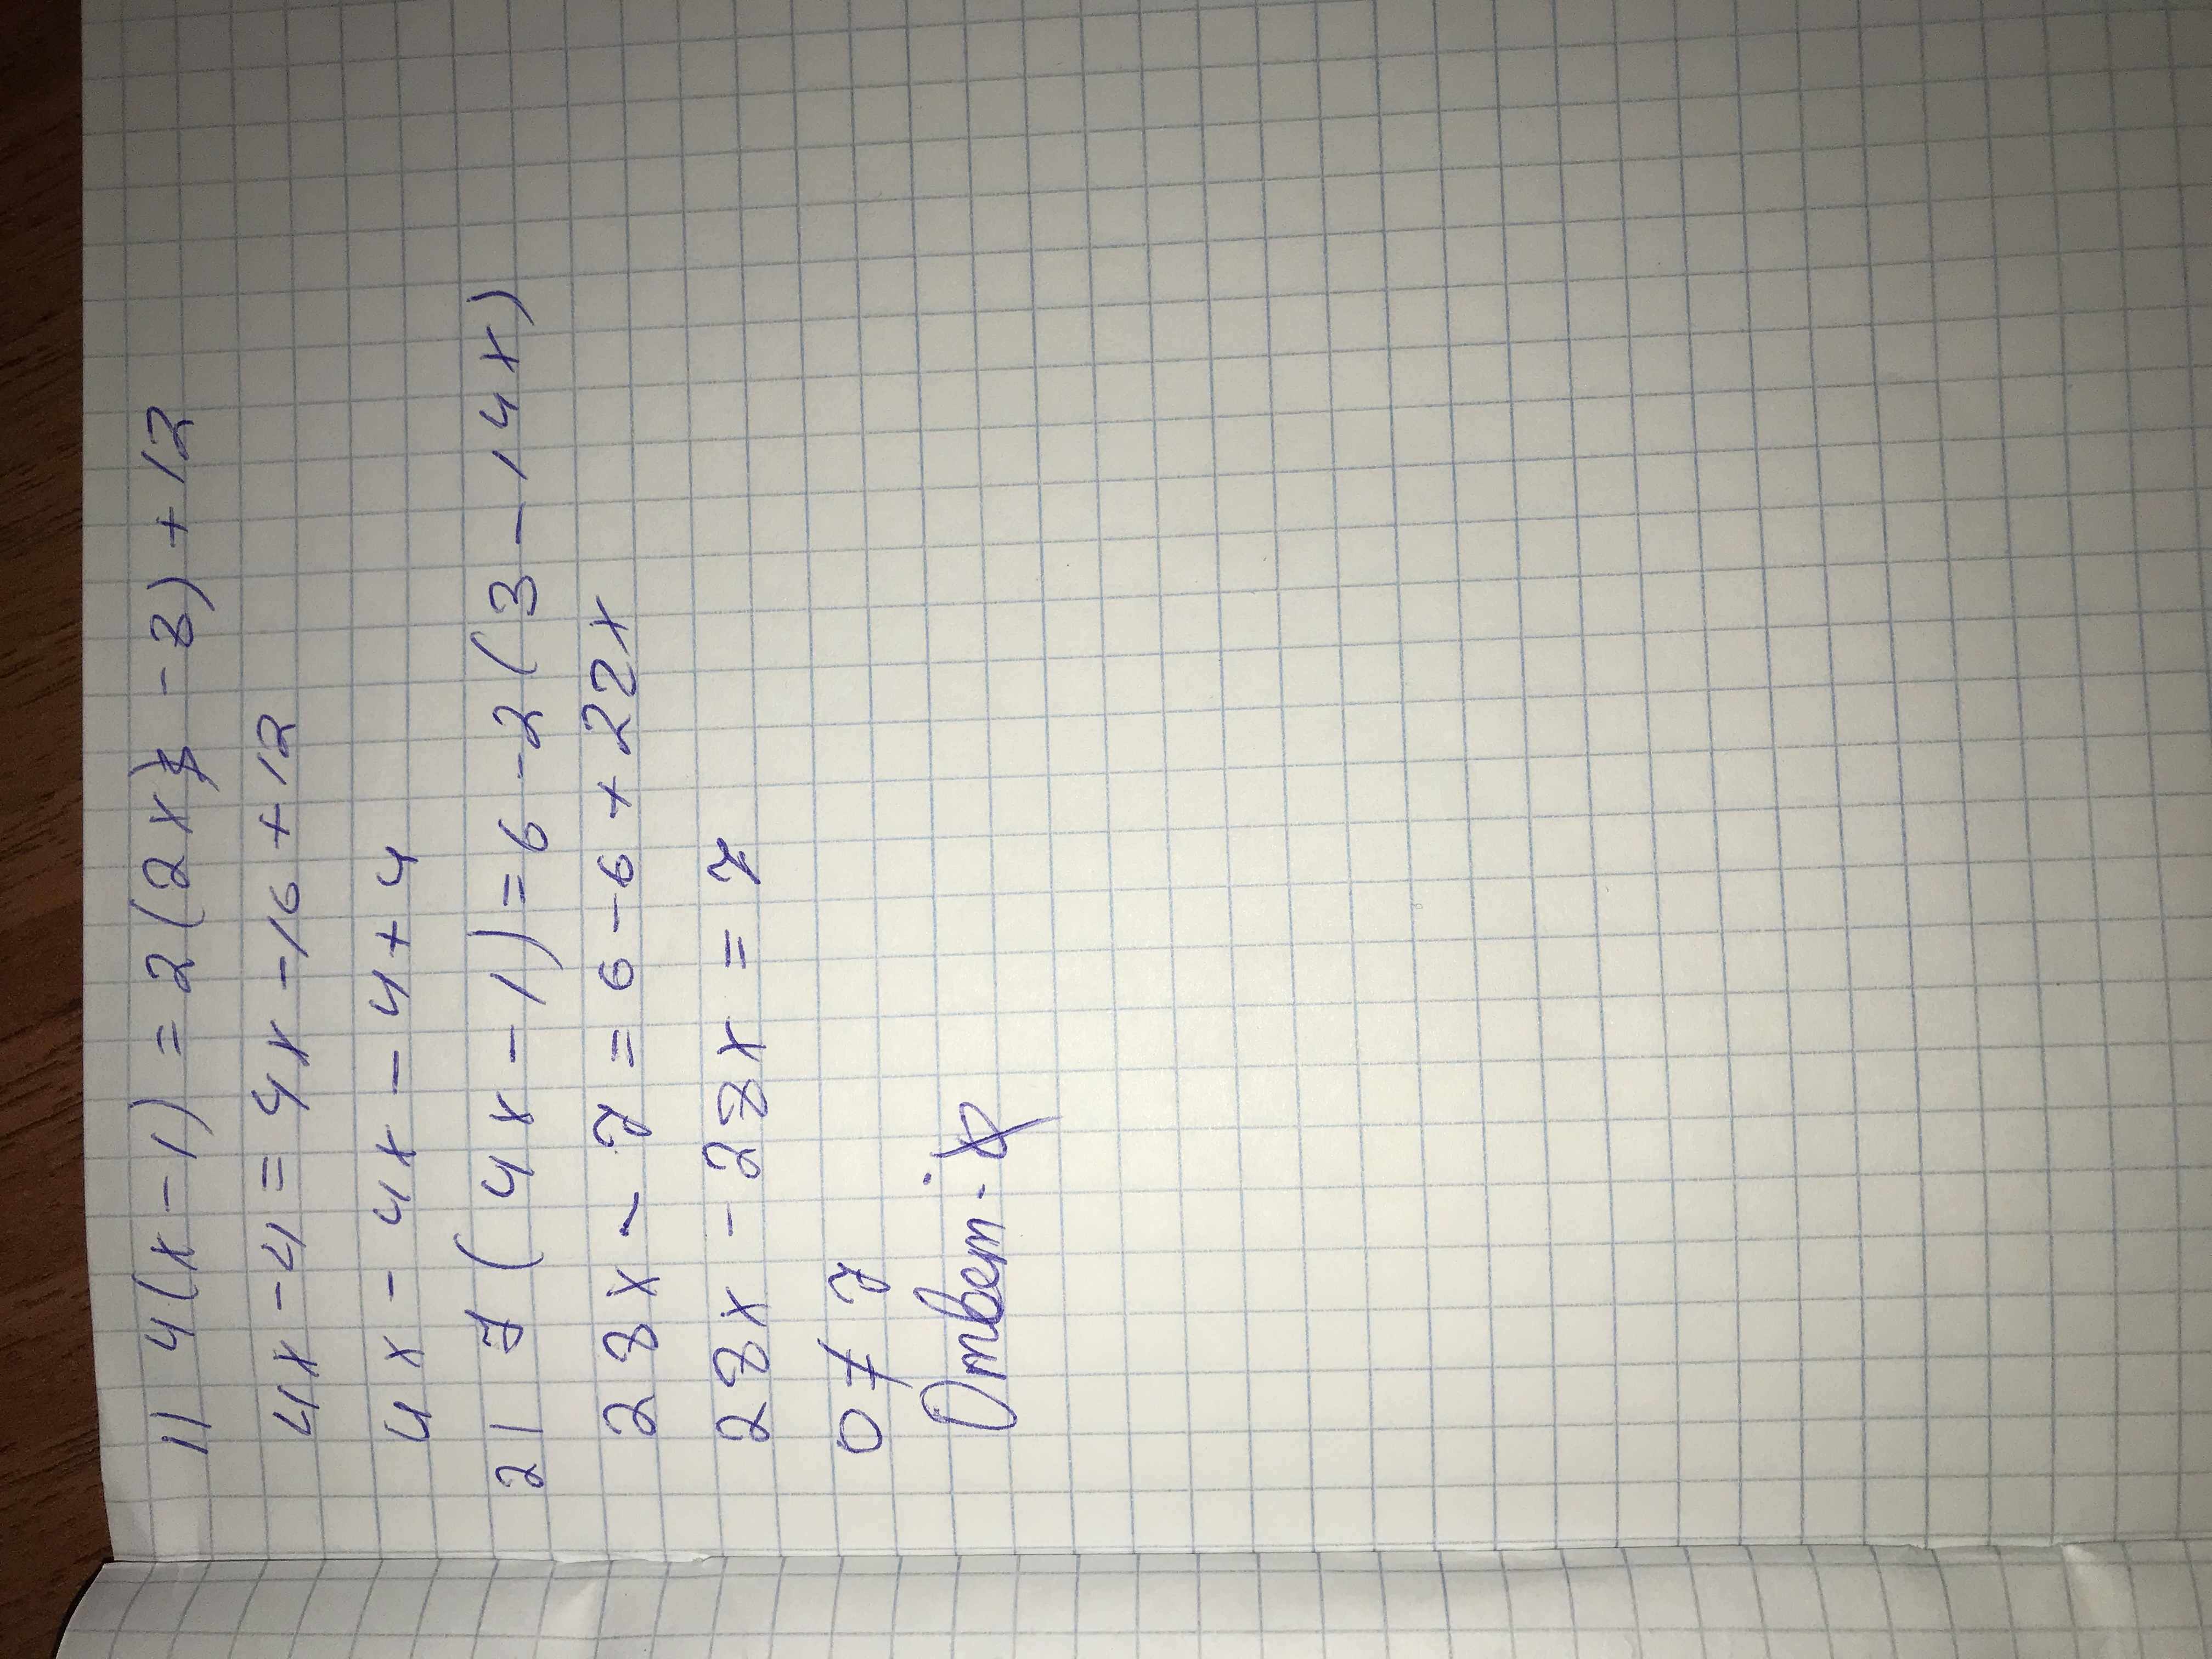 1) 4(x-1) = 2(2x - 8) + 12
4x - 4 = 4x - 16 + 12
4x - 4x - 4 + 4
2) 7(4x - 1) = 6 - 2(3 - 14x)
28x - 7 = 6 - 6 + 22x
28x - 28x = 7
0 ≠ 7
Ответ: